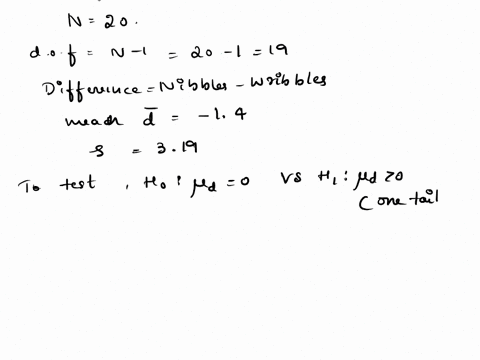 N = 20.
d.o.f = N-1 = 20-1 = 19
Difference = Nibbles - Wribbles
mean d̄ = -1.4
s = 3.19
To test , H₀ : μd = 0 vs H₁ : μd > 0
( one tail